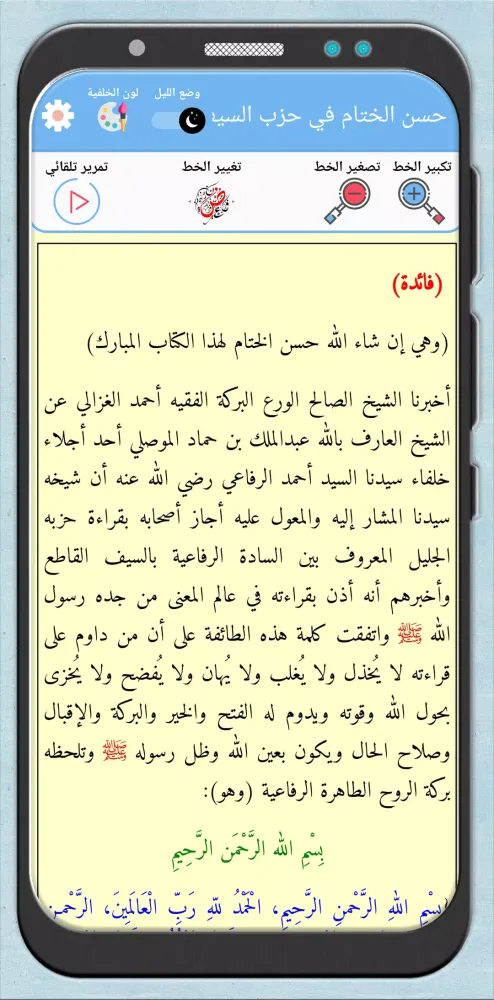 حسن الختام في حزب السيف
وضع الليل
لون الخلفية
تكبير الخط
تصغير الخط
تغيير الخط
تمرير تلقائي
(فائدة)
(وهي إن شاء الله حسن الختام لهذا الكتاب المبارك)
أخبرنا الشيخ الصالح الورع البركة الفقيه أحمد الغزالي عن
الشيخ العارف بالله عبدالملك بن حماد الموصلي أحد أجلاء
خلفاء سيدنا السيد أحمد الرفاعي رضي الله عنه أن شيخه
سيدنا المشار إليه والمعول عليه أجاز أصحابه بقراءة حزبه
الجليل المعروف بين السادة الرفاعية بالسيف القاطع
وأخبرهم أنه أذن بقراءته في عالم المعنى من جده رسول
الله ﷺ واتفقت كلمة هذه الطائفة على أن من داوم على
قراءته لا يُخذل ولا يُغلب ولا يُهان ولا يُفضح ولا يُخزى
بحول الله وقوته ويدوم له الفتح والخير والبركة والإقبال
وصلاح الحال ويكون بعين الله وظل رسوله ﷺ وتلحظه
بركة الروح الطاهرة الرفاعية (وهو):
بِسْمِ الله الرَّحْمَن الرَّحِيمِ
بِسْمِ اللهِ الرَّحْمنِ الرَّحِيمِ، الْحَمْدُ للّهِ رَبِّ الْعَالَمِينَ، الرَّحْمنِ